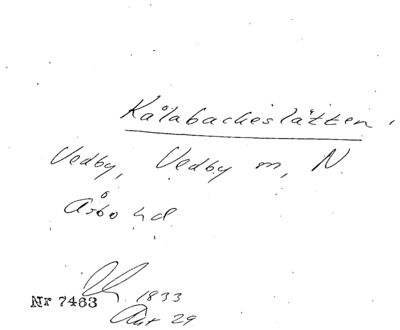 Kålabackeslätten
Vedby, Vedby m, N
Åsbo hd
1833
Nr 7463
Akt 29